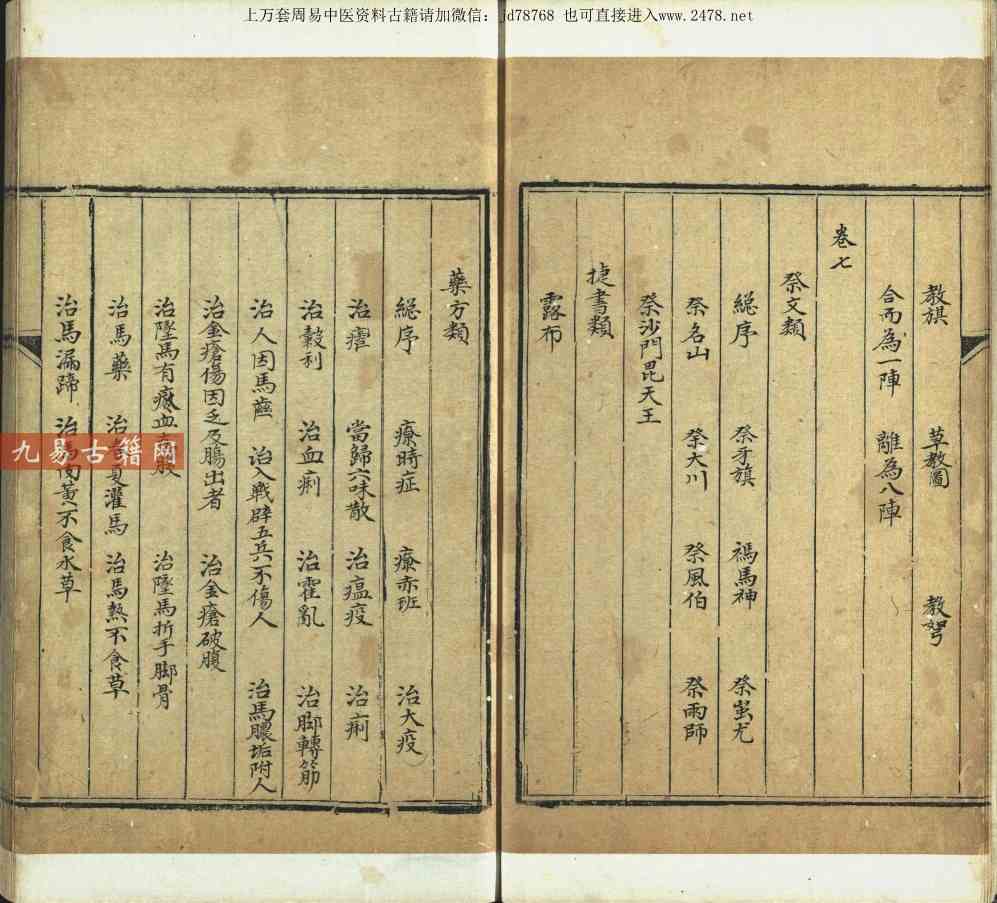 上万套周易中医资料古籍请加微信：jd78768 也可直接进入www.2478.net
教旗 草教圖 教弩
合而為一陣 離為八陣
卷七
祭文類
緫序 祭牙旗 禡馬神 祭蚩尤
祭名山 祭大川 祭風伯 祭雨師
祭沙門毘天王
捷書類
露布
藥方類
緫序 療時症 療赤班 治大疫
治瘧 當歸六味散 治瘟疫 治痢
治穀利 治血痢 治霍亂 治脚轉筋
治人因馬 治入戰辟五兵不傷人 治馬膿垢附人
治金瘡傷因乏及腸出者 治金瘡破腹
治墜馬有瘀血 治墜馬折手脚骨
治馬藥 治 夏灌馬 治馬熱不食草
治馬漏蹄 治馬 黃不食水草
九易古籍网